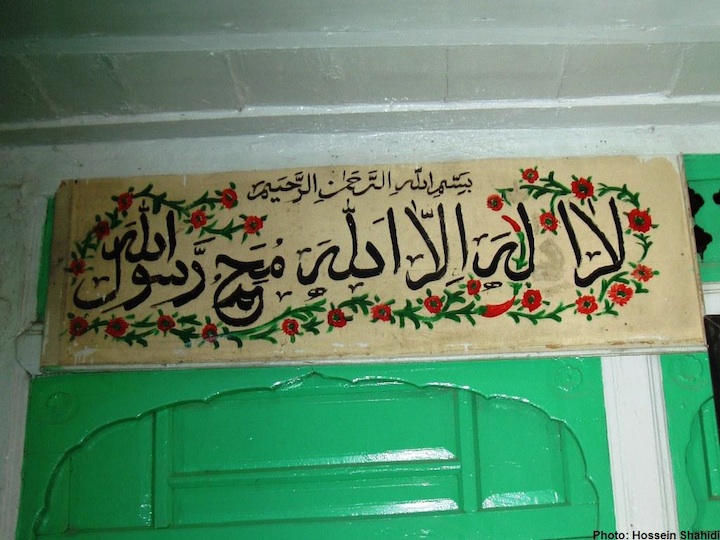 بِسْمِ اللهِ الرَّحْمٰنِ الرَّحِيْمِ
لَا اِلٰهَ اِلَّا اللهُ مُحَمَّدٌ رَّسُوْلُ اللهِ
Photo: Hossein Shahidi